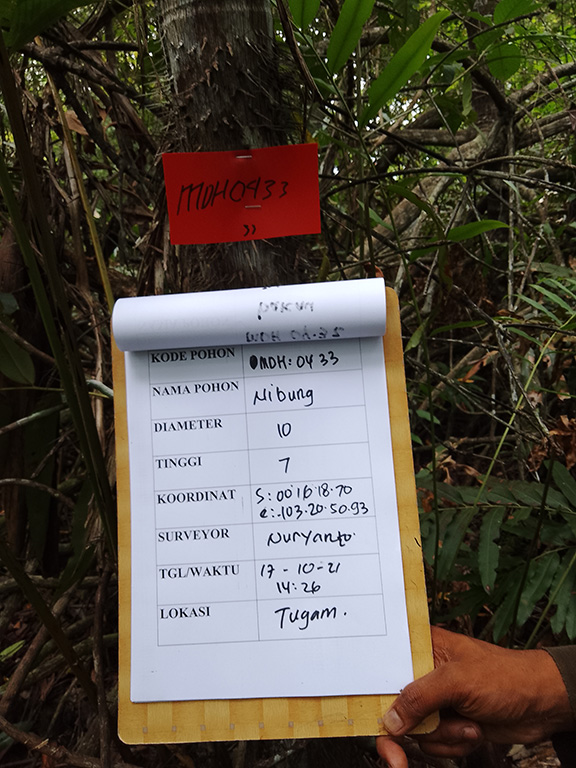 MDH0433
»
KODE POHON MDH:0433
NAMA POHON Nibung
DIAMETER 10
TINGGI 7
KOORDINAT S:00°16.18.70
e:-103.20.50.93
SURVEYOR Nuryanto.
TGL/WAKTU 17-10-21
14:26
LOKASI Tugam.